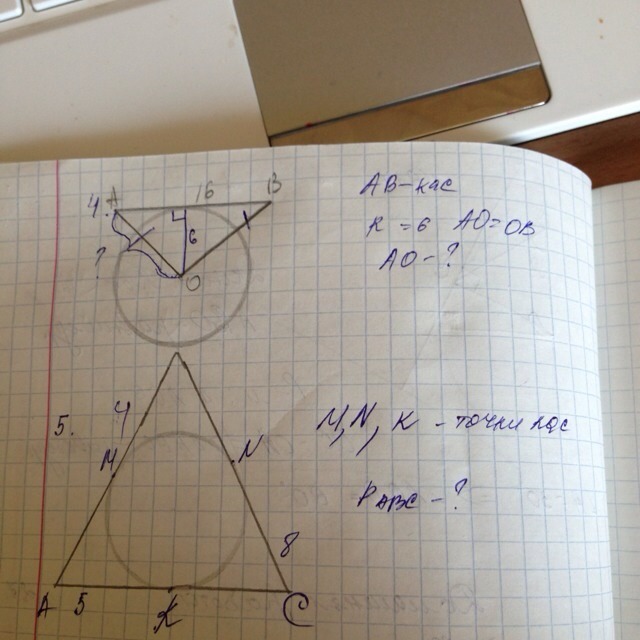 4. A 16 B
6
?
O
AB-кас
R = 6 AO = OB
AO - ?
5. 4
M N
8
A 5 K C
M, N, K - точки кас
P ABC - ?